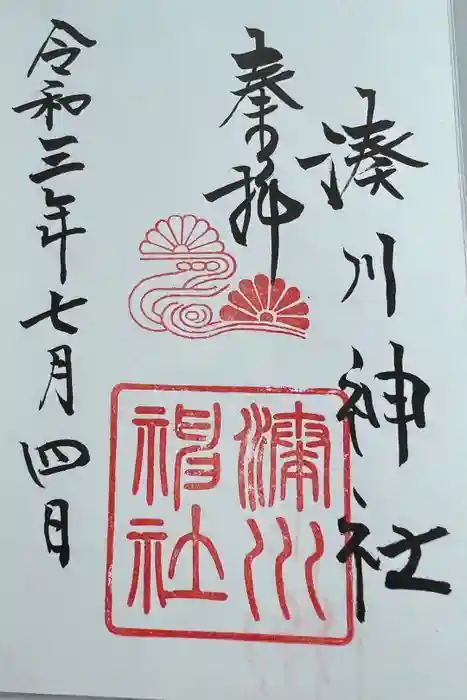 湊川神社
奉拝
湊川
神社
令和三年七月四日